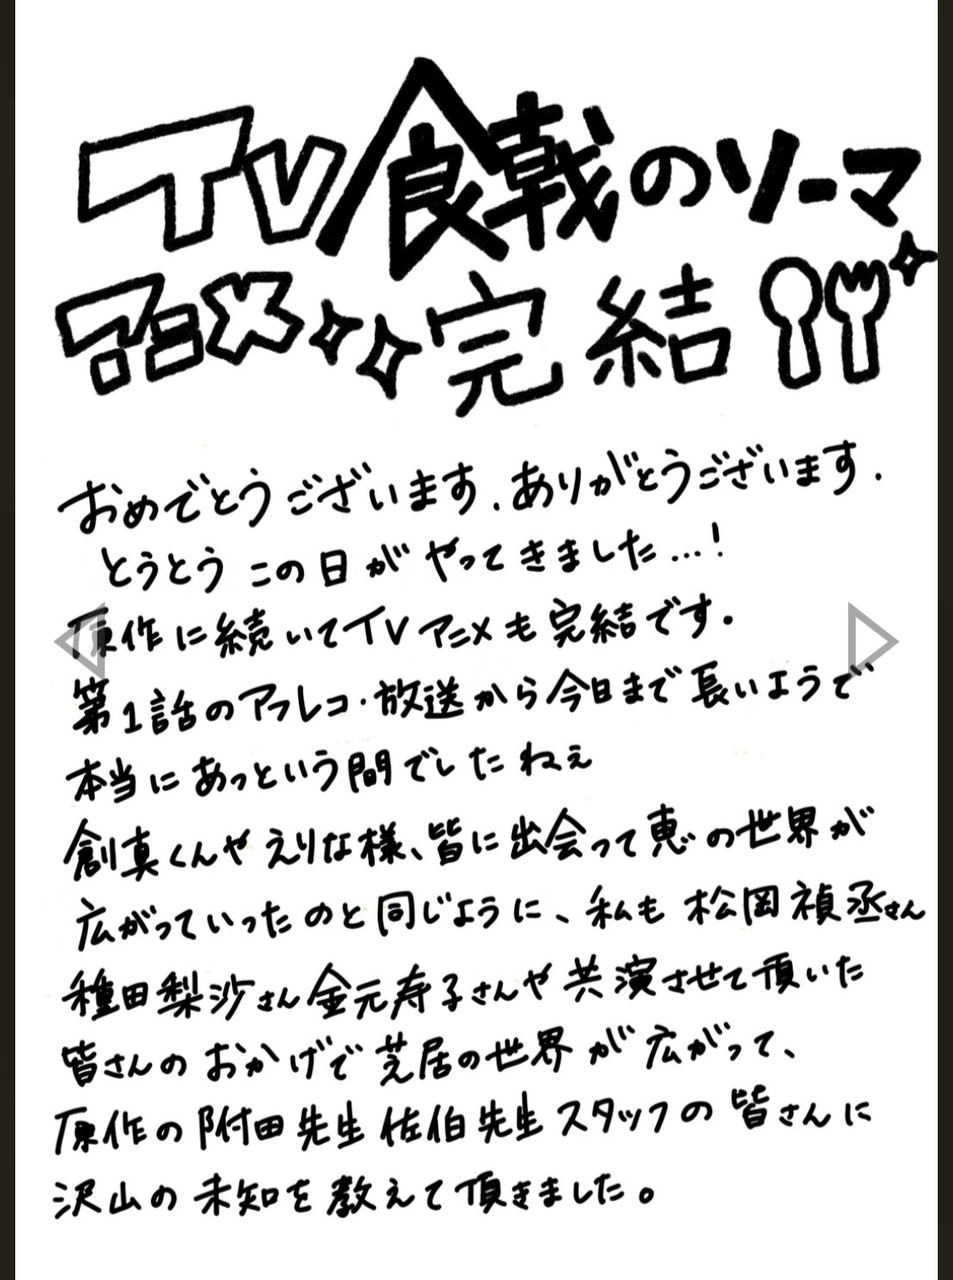 TV食戟のソーマ
アニメ完結
おめでとうございます.ありがとうございます.
とうとうこの日がやってきました…!
原作に続いてTVアニメも完結です。
第1話のアフレコ・放送から今日まで長いようで
本当にあっという間でしたねぇ
創真くんやえりな様、皆に出会って恵の世界が
広がっていったのと同じように、私も松岡禎丞さん
種田梨沙さん金元寿子さんや共演させて頂いた
皆さんのおかげで芝居の世界が広がって、
原作の附田先生佐伯先生スタッフの皆さんに
沢山の未知を教えて頂きました。